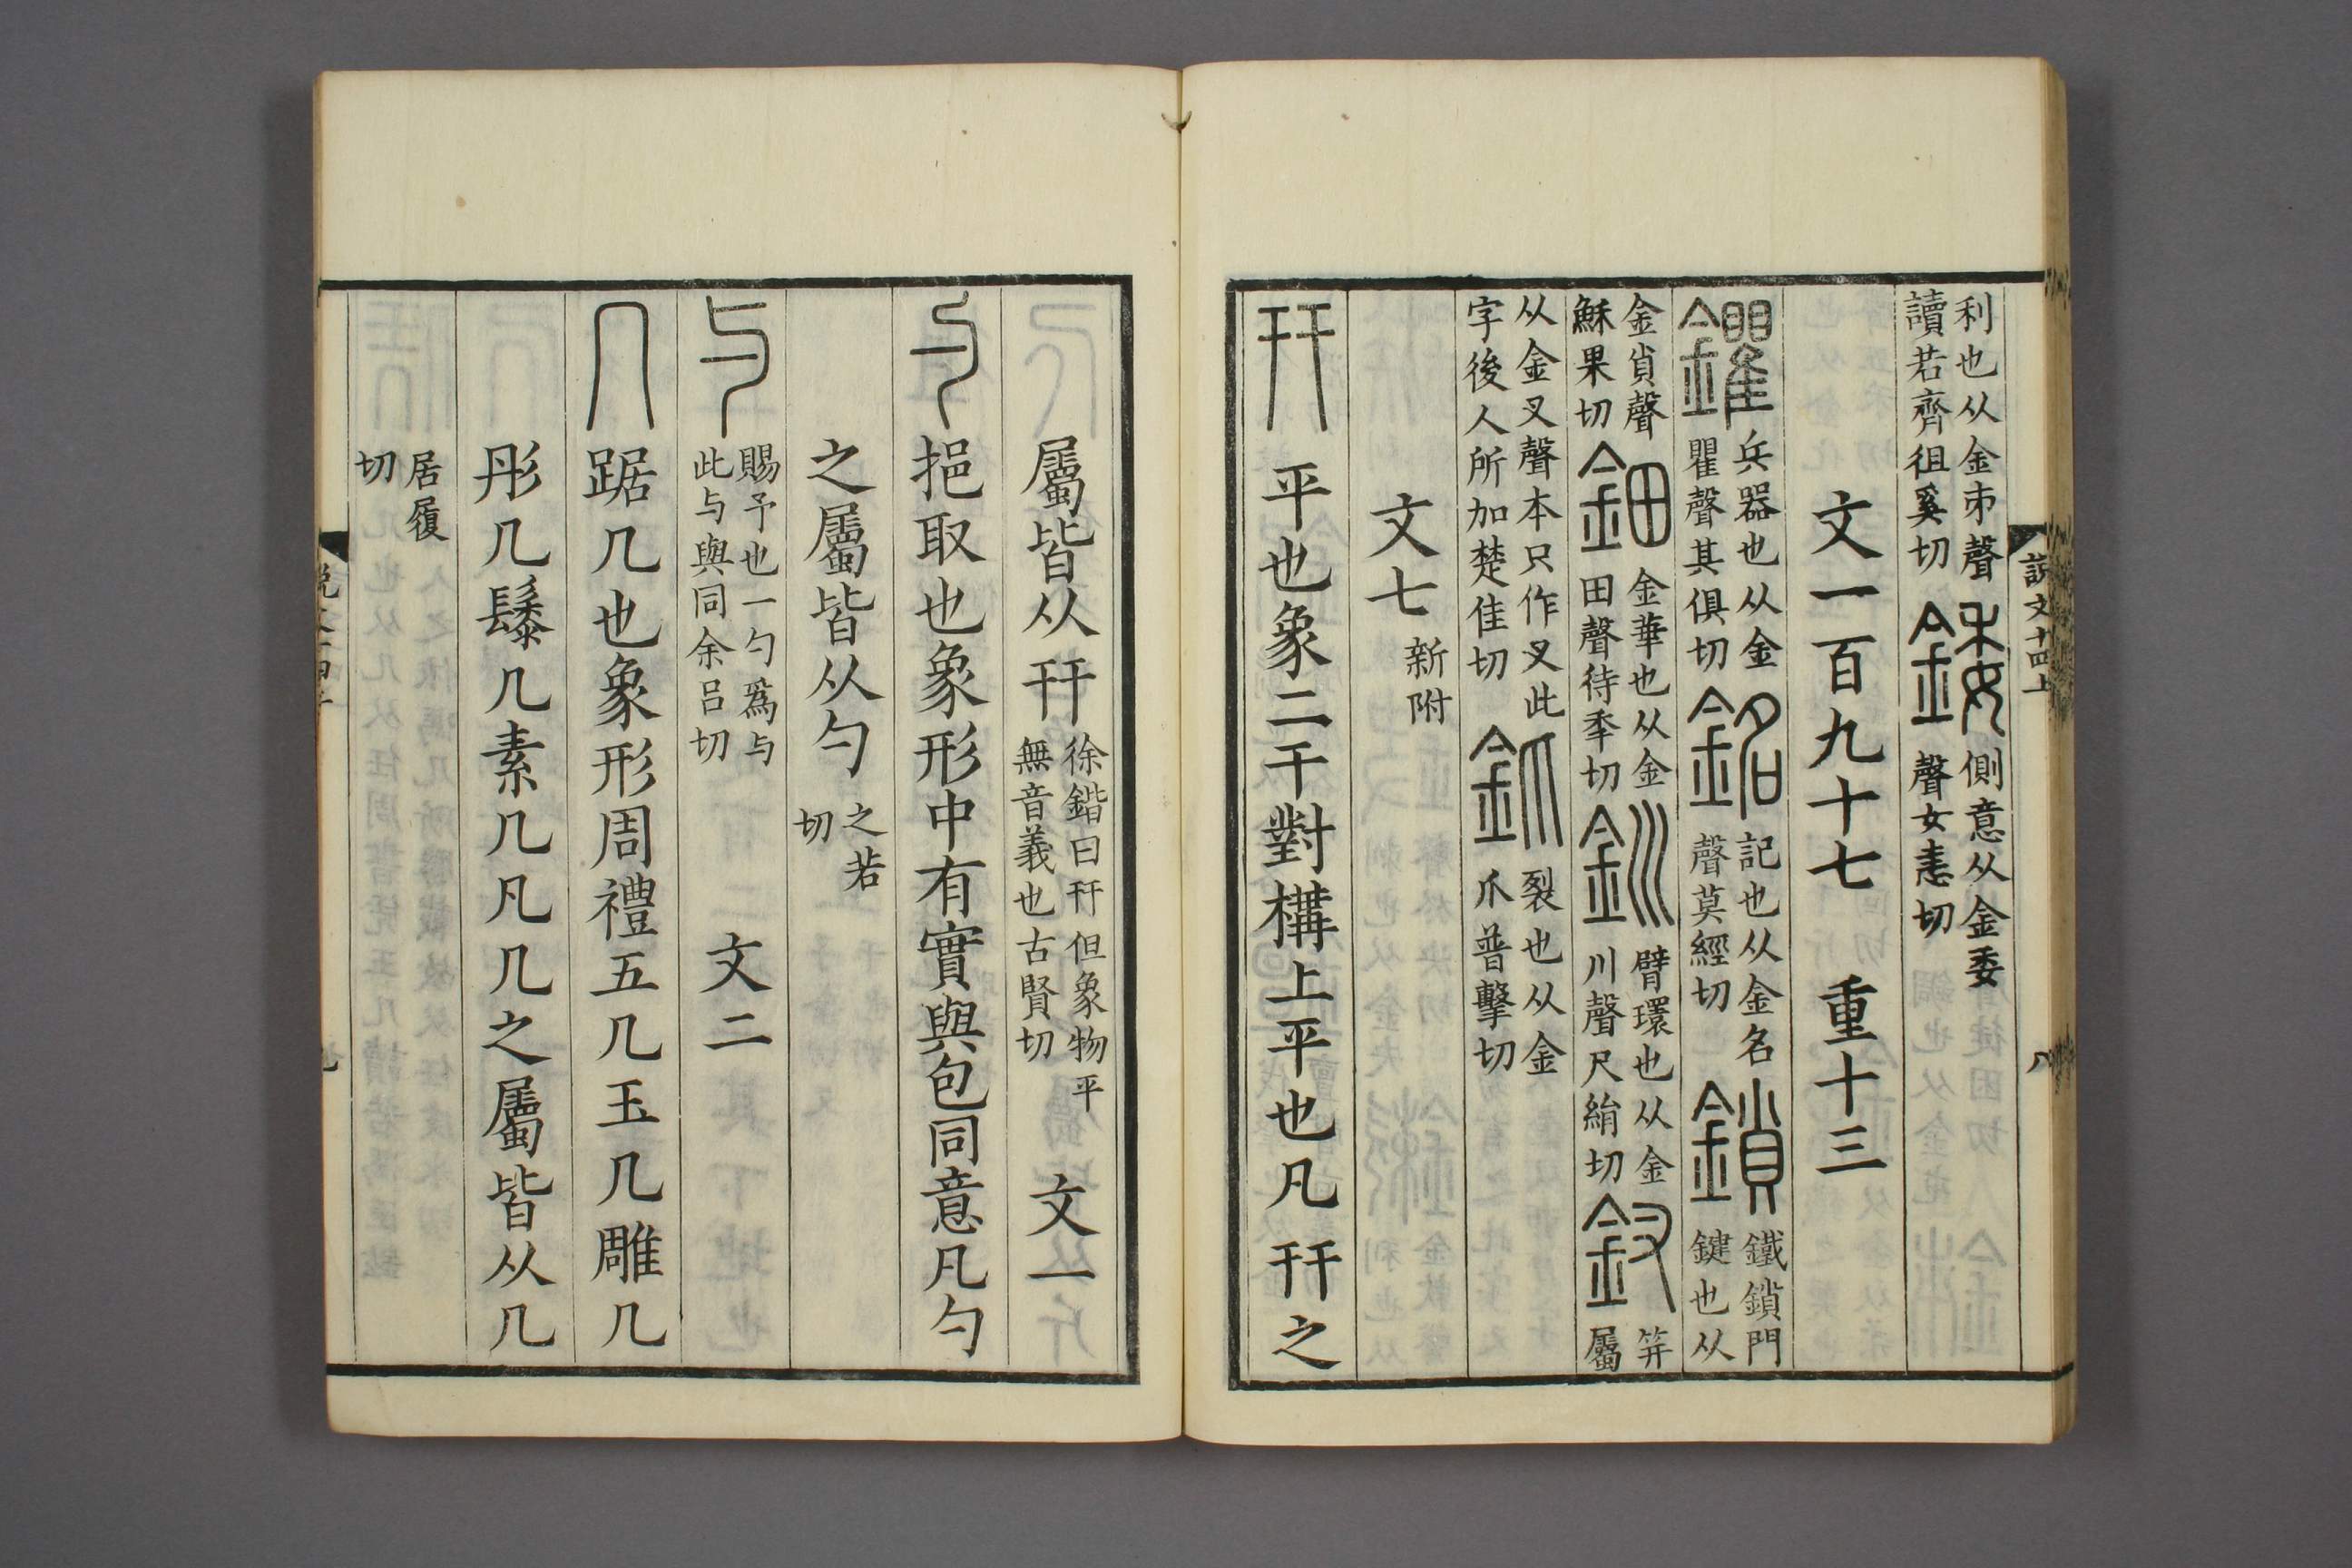 利也从金𠂔聲
讀若齊徂奚切
錗
側意从金委
聲女恚切
文一百九十七　重十三
鑺
兵器也从金
瞿聲其俱切
銘
記也从金名
聲莫經切
鎖
鐵鎖門
鍵也从
金𧴪聲
穌果切
鈿
金華也从金
田聲待秊切
釧
臂環也从金
川聲尺絹切
釵
笄
屬
从金叉聲本只作叉此
字後人所加楚佳切
釽
裂也从金
爪普擊切
文七
新附
幵
平也象二干對構上平也凡幵之
說文十四上
八
屬皆从幵
徐鍇曰幵但象物平
無音義也古賢切
文一
勺
挹取也象形中有實與包同意凡勺
之屬皆从勺
之若
切
与
賜予也一勺爲与
此与與同余呂切
文二
几
踞几也象形周禮五几玉几雕几
彤几䰍几素几凡几之屬皆从几
居履
切